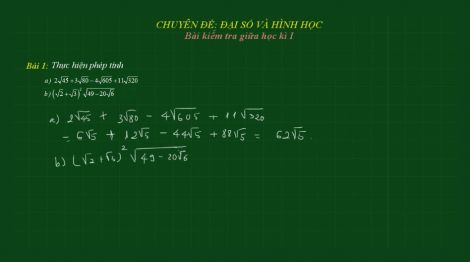 CHUYÊN ĐỀ: ĐẠI SỐ VÀ HÌNH HỌC
Bài kiểm tra giữa học kì I
Bài 1: Thực hiện phép tính
a) 2√45 + 3√80 − 4√605 + 11√320
b) (√2 + √3)² √(49 − 20√6)
a) 2√45 + 3√80 − 4√605 + 11√320
= 6√5 + 12√5 − 44√5 + 88√5 = 62√5.
b) (√2 + √6)² √(49 − 20√6)